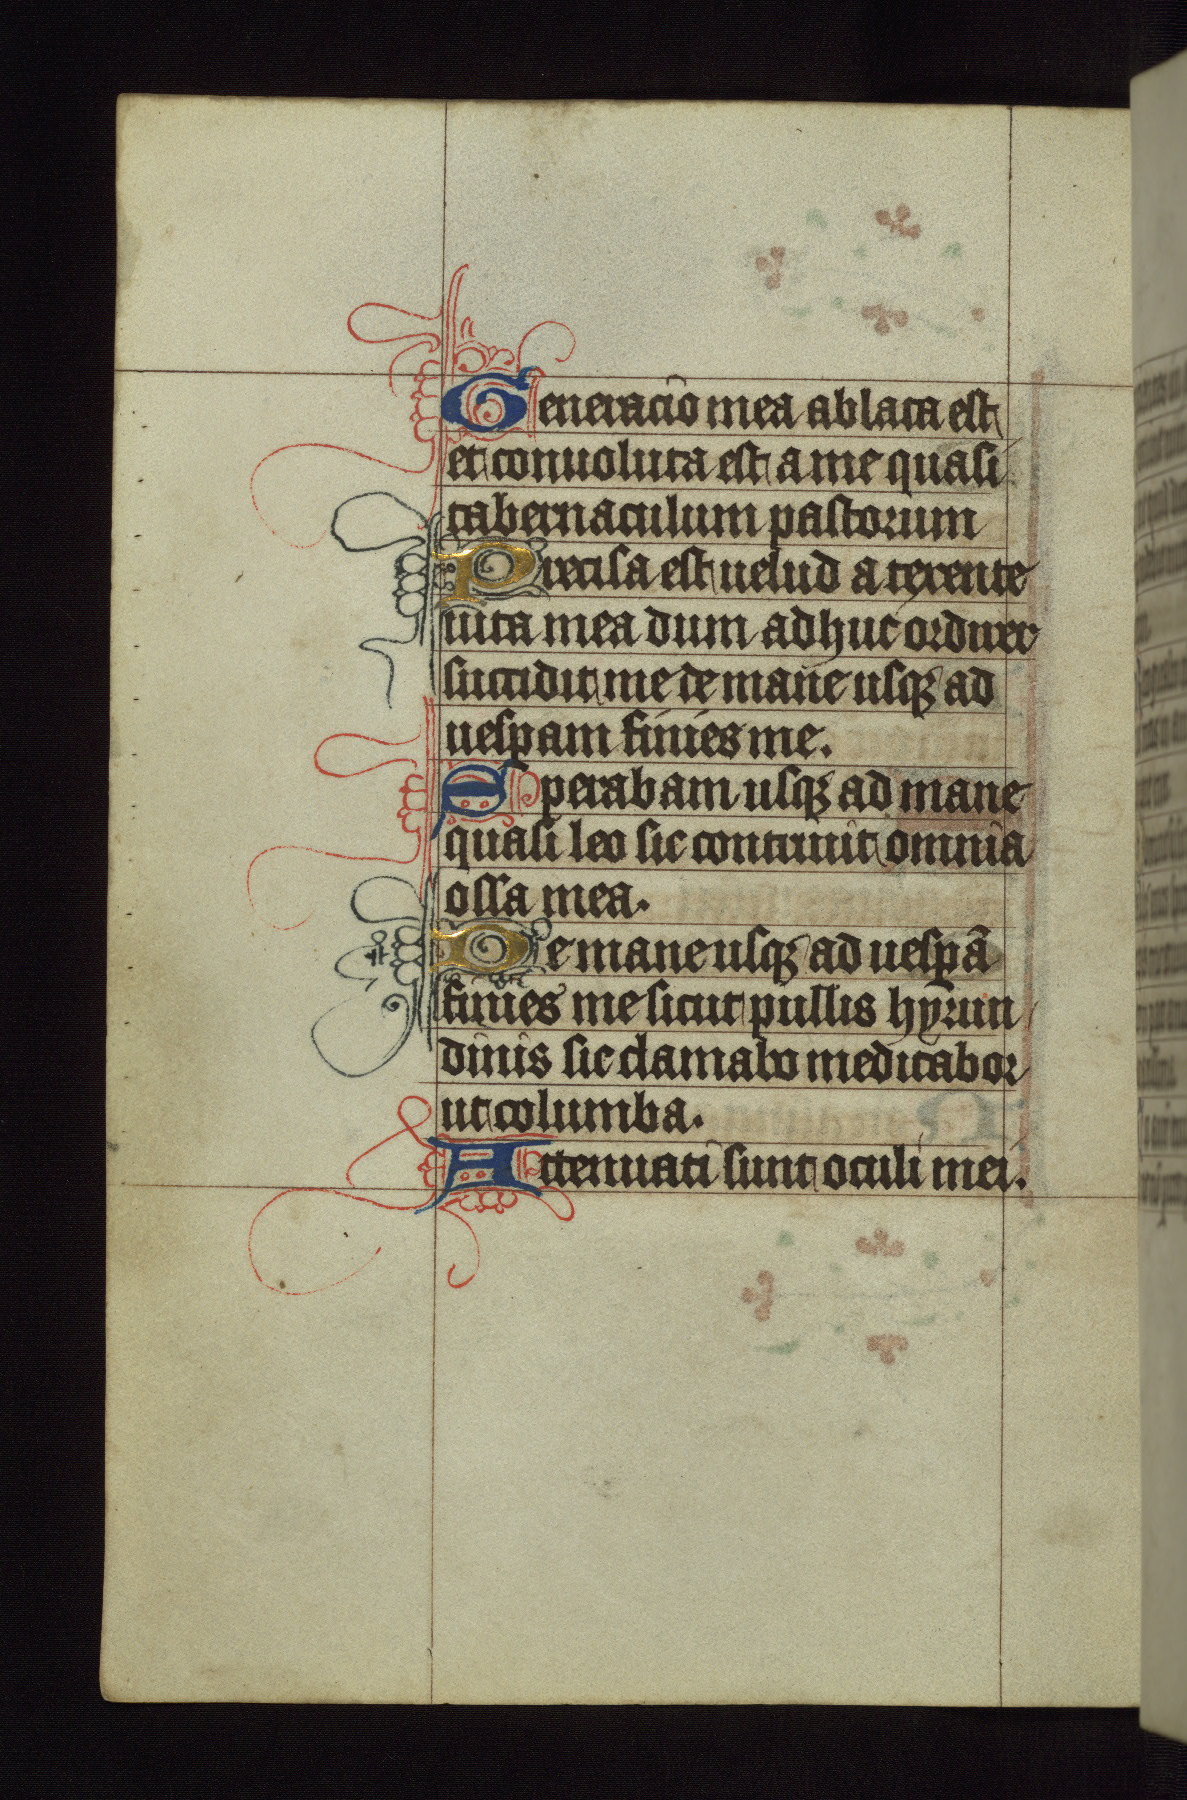 Generacio mea ablata est
et conuoluta est a me quasi
tabernaculum pastorum
Precisa est uelud a texente
uita mea dum adhuc ordirer
succidit me de mane usq ad
uespam finies me.
Sperabam usq ad mane
quasi leo sic contriuit omnia
ossa mea.
De mane usq ad uespã
finies me sicut pullis hyrun
dinis sic clamabo meditabor
ut columba.
Attenuati sunt oculi mei.